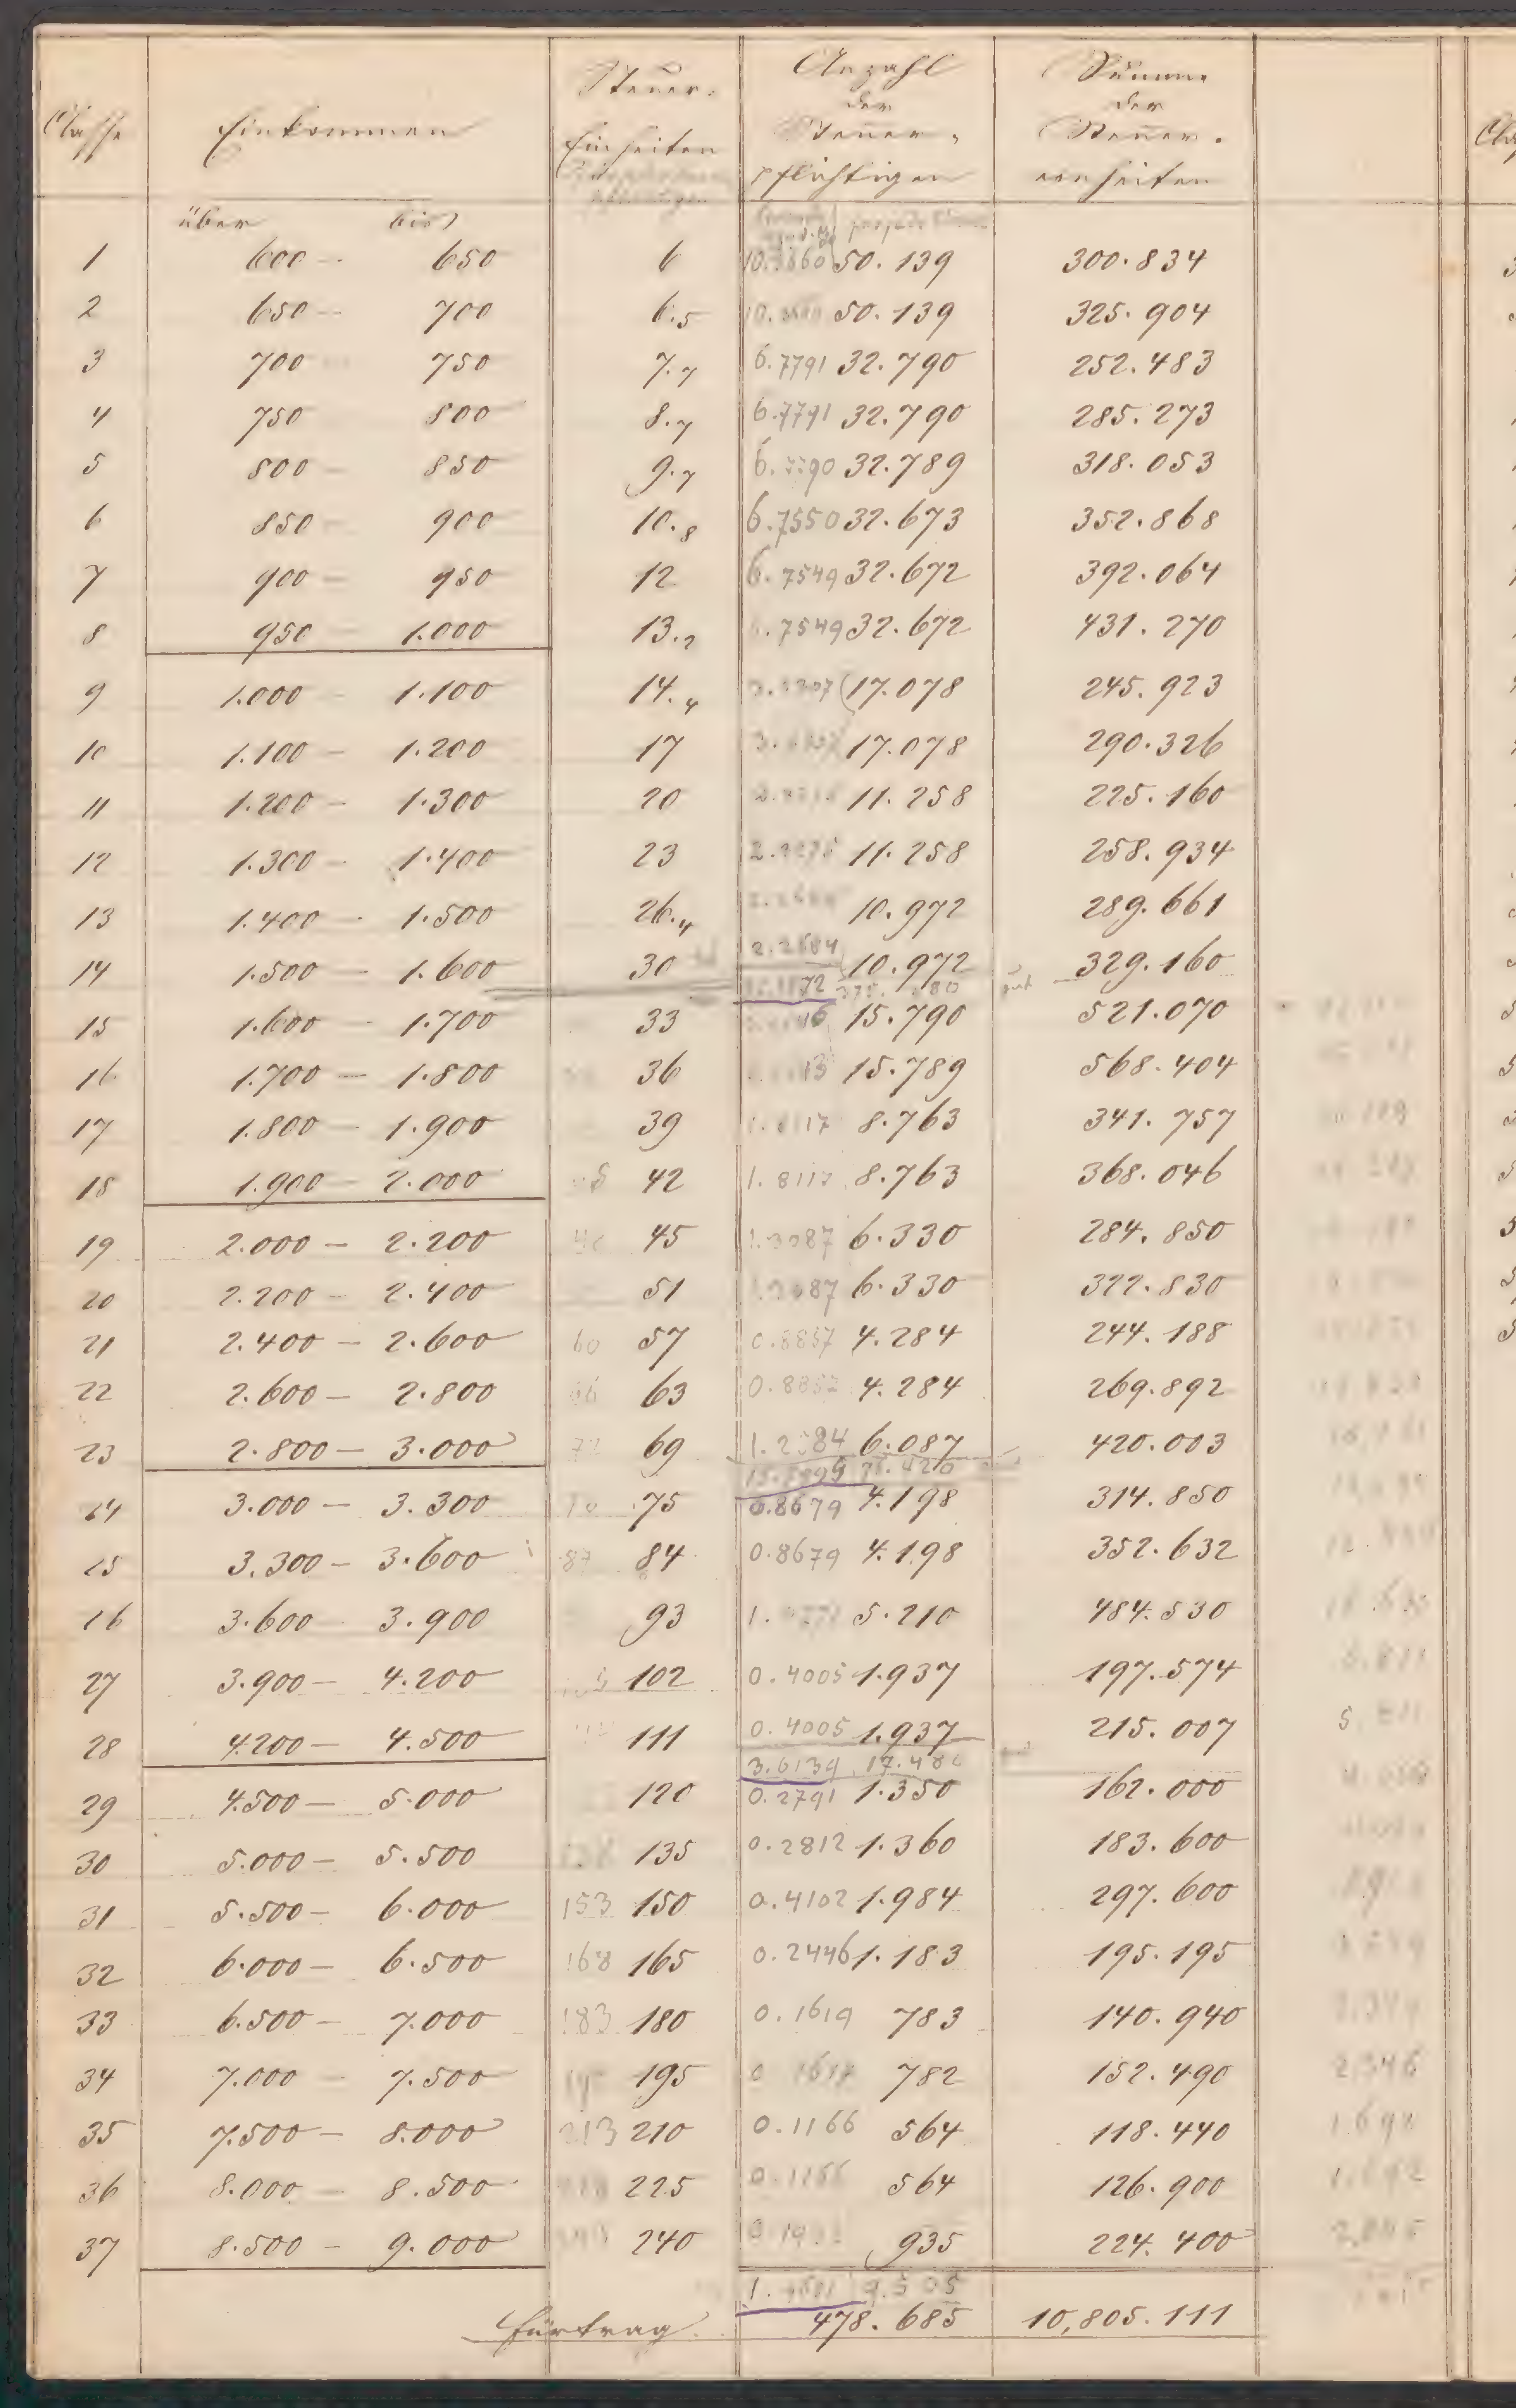 Classe Einkommen Steuer- Anzahl Summe
Einheiten der der
Steuer- Steuer-
pflichtigen einheiten
über bis
1 600 - 650 6 50.139 300.834
2 650 - 700 6.5 50.139 325.904
3 700 750 7.7 6.7791 32.790 252.483
4 750 800 8.7 6.7791 32.790 285.273
5 800 - 850 9.7 32.789 318.053
6 850 - 900 10.8 6.7550 32.673 352.868
7 900 - 950 12 6.7549 32.672 392.064
8 950 - 1.000 13.2 .7549 32.672 431.270
9 1.000 - 1.100 14.4 17.078 245.923
10 1.100 - 1.200 17 17.078 290.326
11 1.200 - 1.300 20 11.258 225.160
12 1.300 - 1.400 23 11.258 258.934
13 1.400 - 1.500 26.4 10.972 289.661
14 1.500 - 1.600 30 2.2684 10.972 329.160
15 1.600 - 1.700 33 15.790 521.070
16 1.700 - 1.800 36 15.789 568.404
17 1.800 - 1.900 39 8.763 341.757
18 1.900 - 2.000 42 1.8117 8.763 368.046
19 2.000 - 2.200 45 1.3087 6.330 284.850
20 2.200 - 2.400 51 6.330 322.830
21 2.400 - 2.600 60 57 0.8857 4.284 244.188
22 2.600 - 2.800 66 63 0.8857 4.284 269.892
23 2.800 - 3.000 69 1.2584 6.087 420.003
24 3.000 - 3.300 75 0.8679 4.198 314.850
25 3.300 - 3.600 87 84 0.8679 4.198 352.632
26 3.600 - 3.900 93 5.210 484.530
27 3.900 - 4.200 102 0.4005 1.937 197.574
28 4.200 - 4.500 111 0.4005 1.937 215.007
3.6139 17.480
29 4.500 - 5.000 120 0.2791 1.350 162.000
30 5.000 - 5.500 135 0.2812 1.360 183.600
31 5.500 - 6.000 153 150 0.4102 1.984 297.600
32 6.000 - 6.500 168 165 0.2446 1.183 195.195
33 6.500 - 7.000 183 180 0.1619 783 140.940
34 7.000 - 7.500 195 0.1617 782 152.490 2.346
35 7.500 - 8.000 213 210 0.1166 564 118.440 1.692
36 8.000 - 8.500 225 0.1166 564 126.900 1.692
37 8.500 - 9.000 240 935 224.400
9.505
Fürtrag 478.685 10,805.111